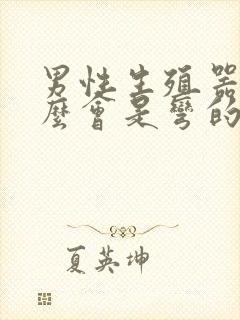 男性生殖器
麼會是彎的
夏英坤